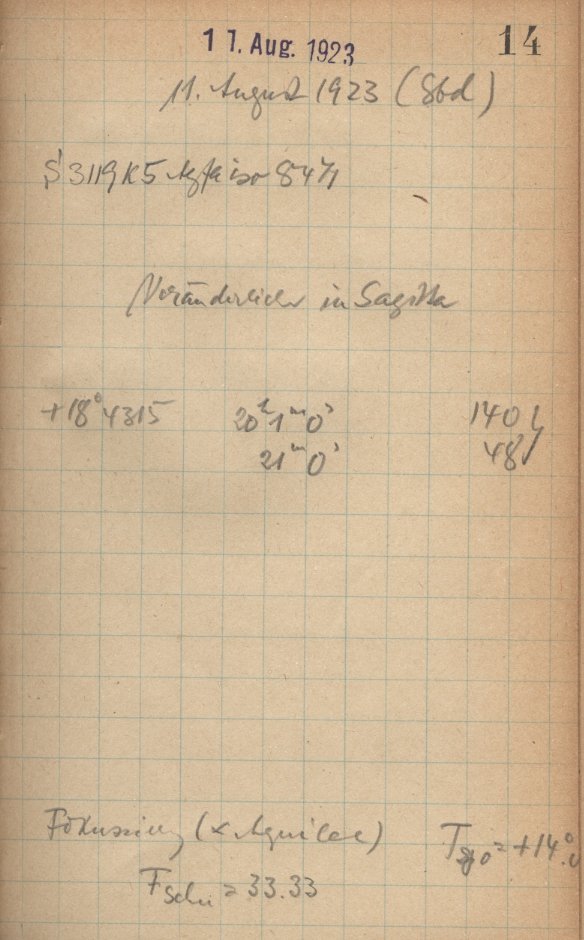 11. Aug. 1923 14
11. August 1923 (Sbd)
S 3119 K5 Agfa iso 8471
Veränderlicher in Sagitta
+18°4315 20ʰ1ᵐ0ˢ 140
21ᵐ0ˢ 48
Fokussierung (α Aquilae) T = +14°.0
F = 33.33